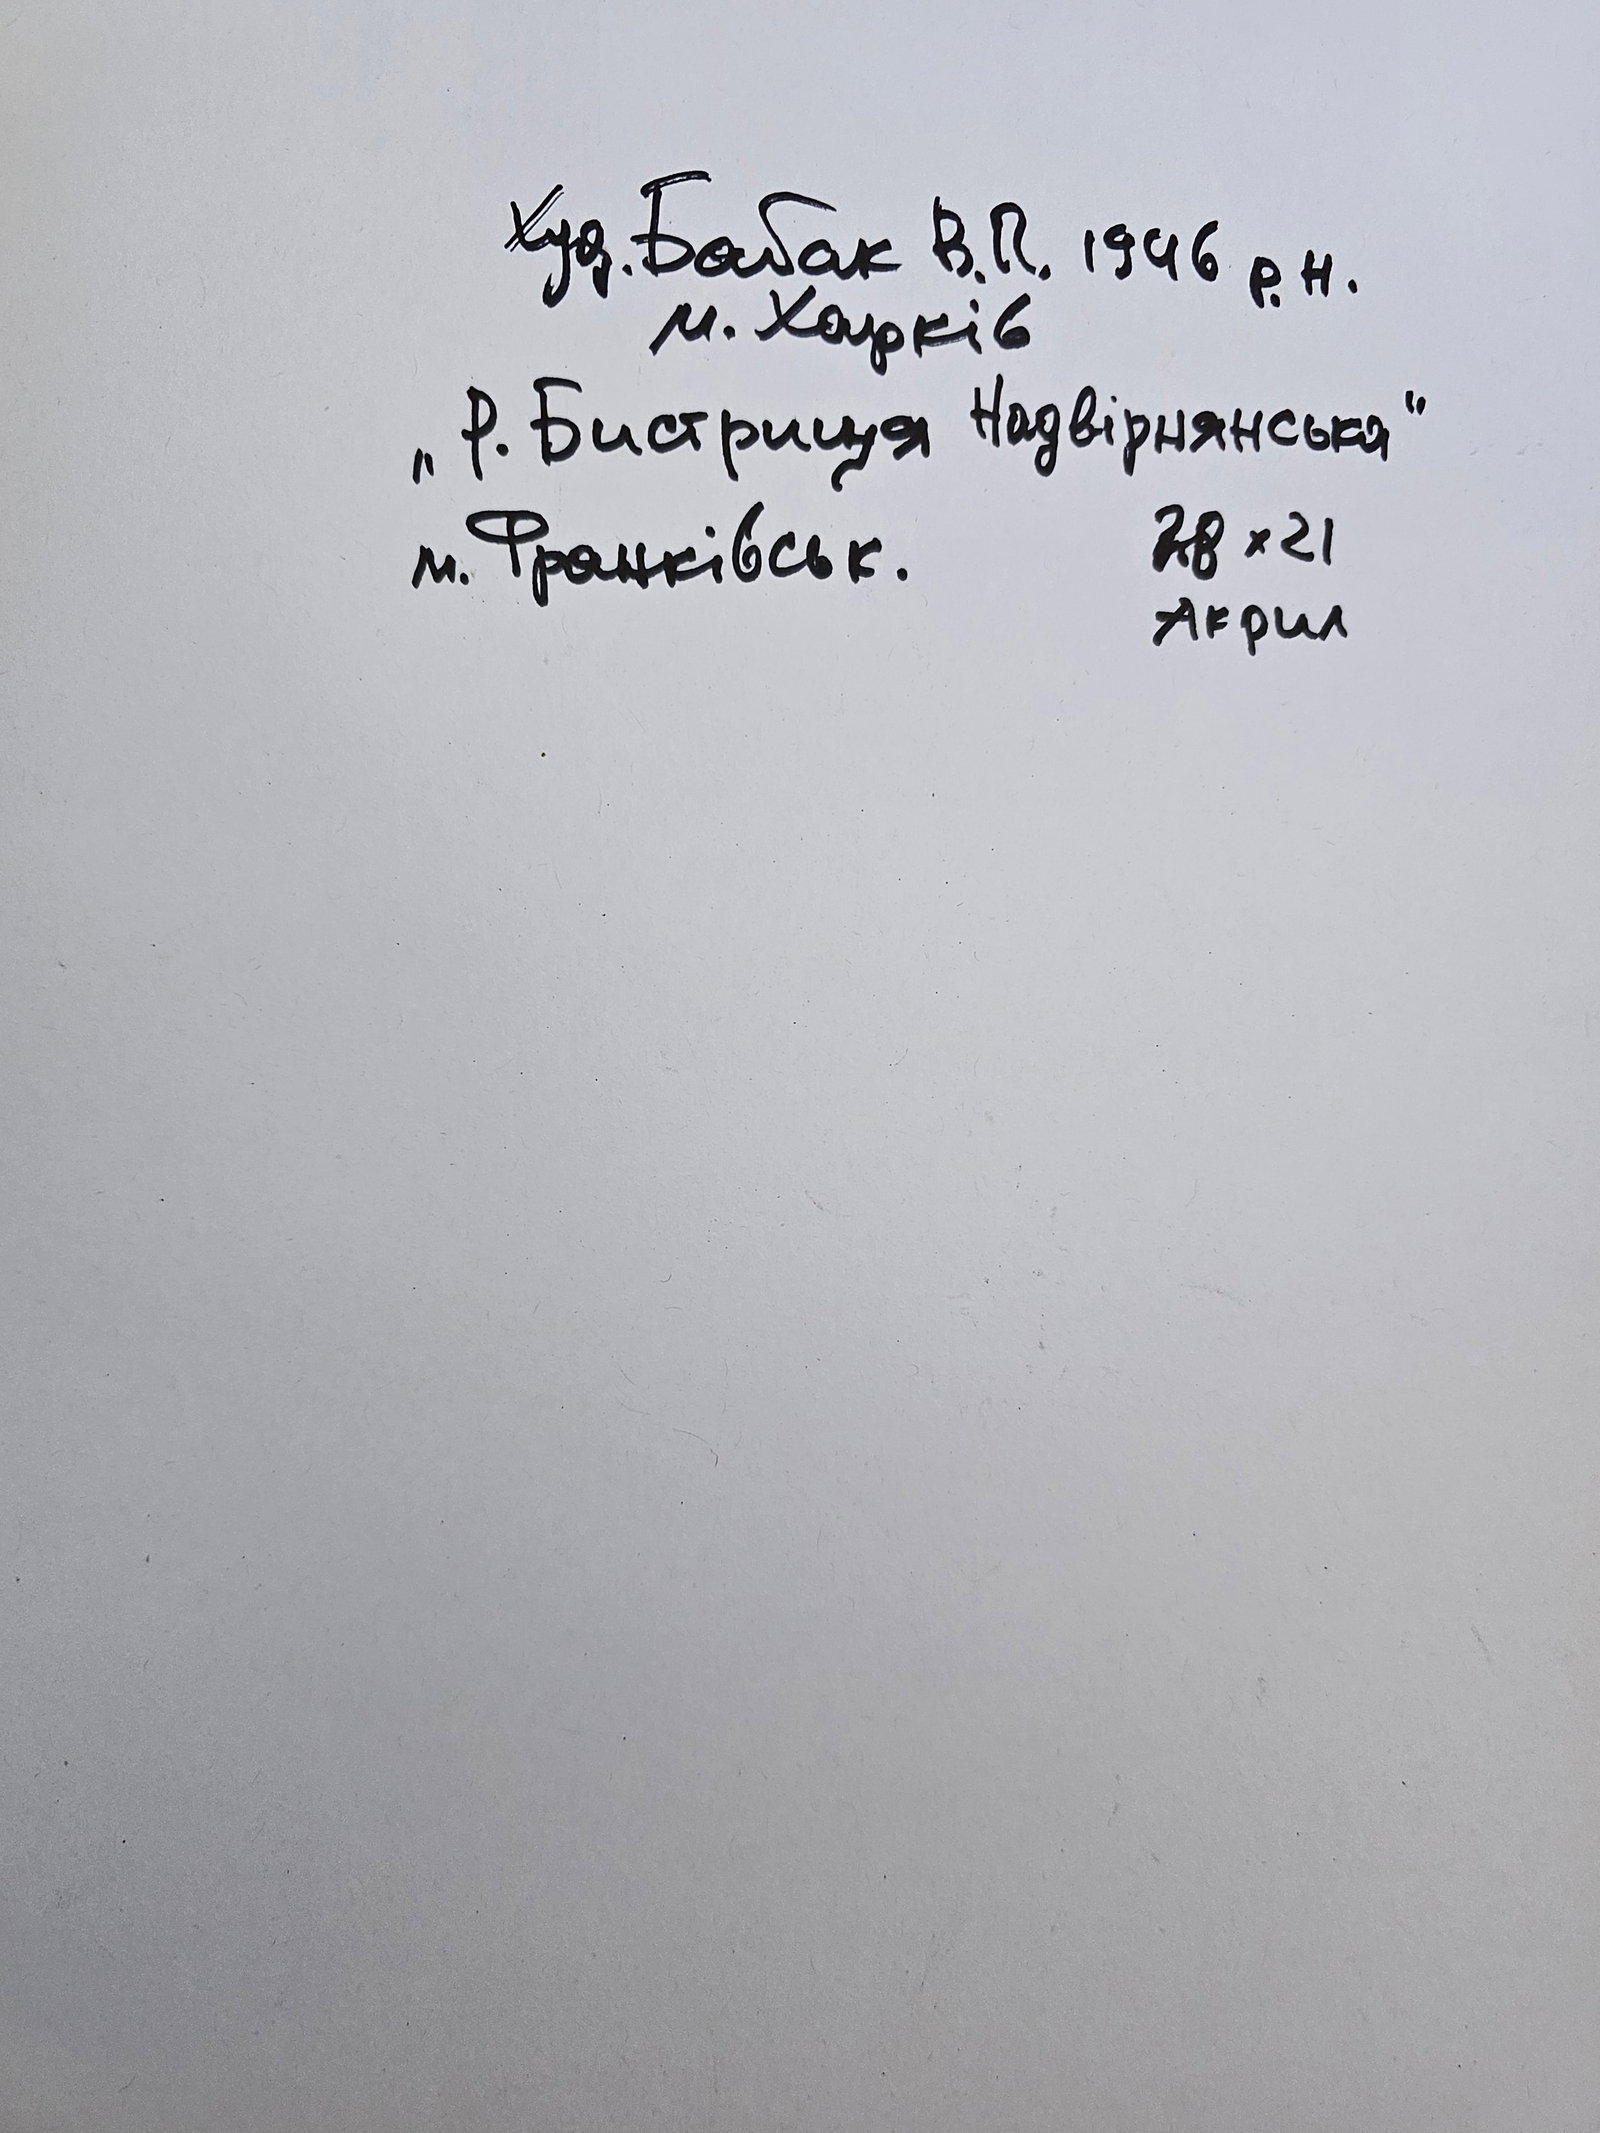 Худ. Бабак В.П. 1946 р.н.
м. Харків
„Р. Бистриця Надвірнянська"
м. Франківськ. 28 x 21
Акрил